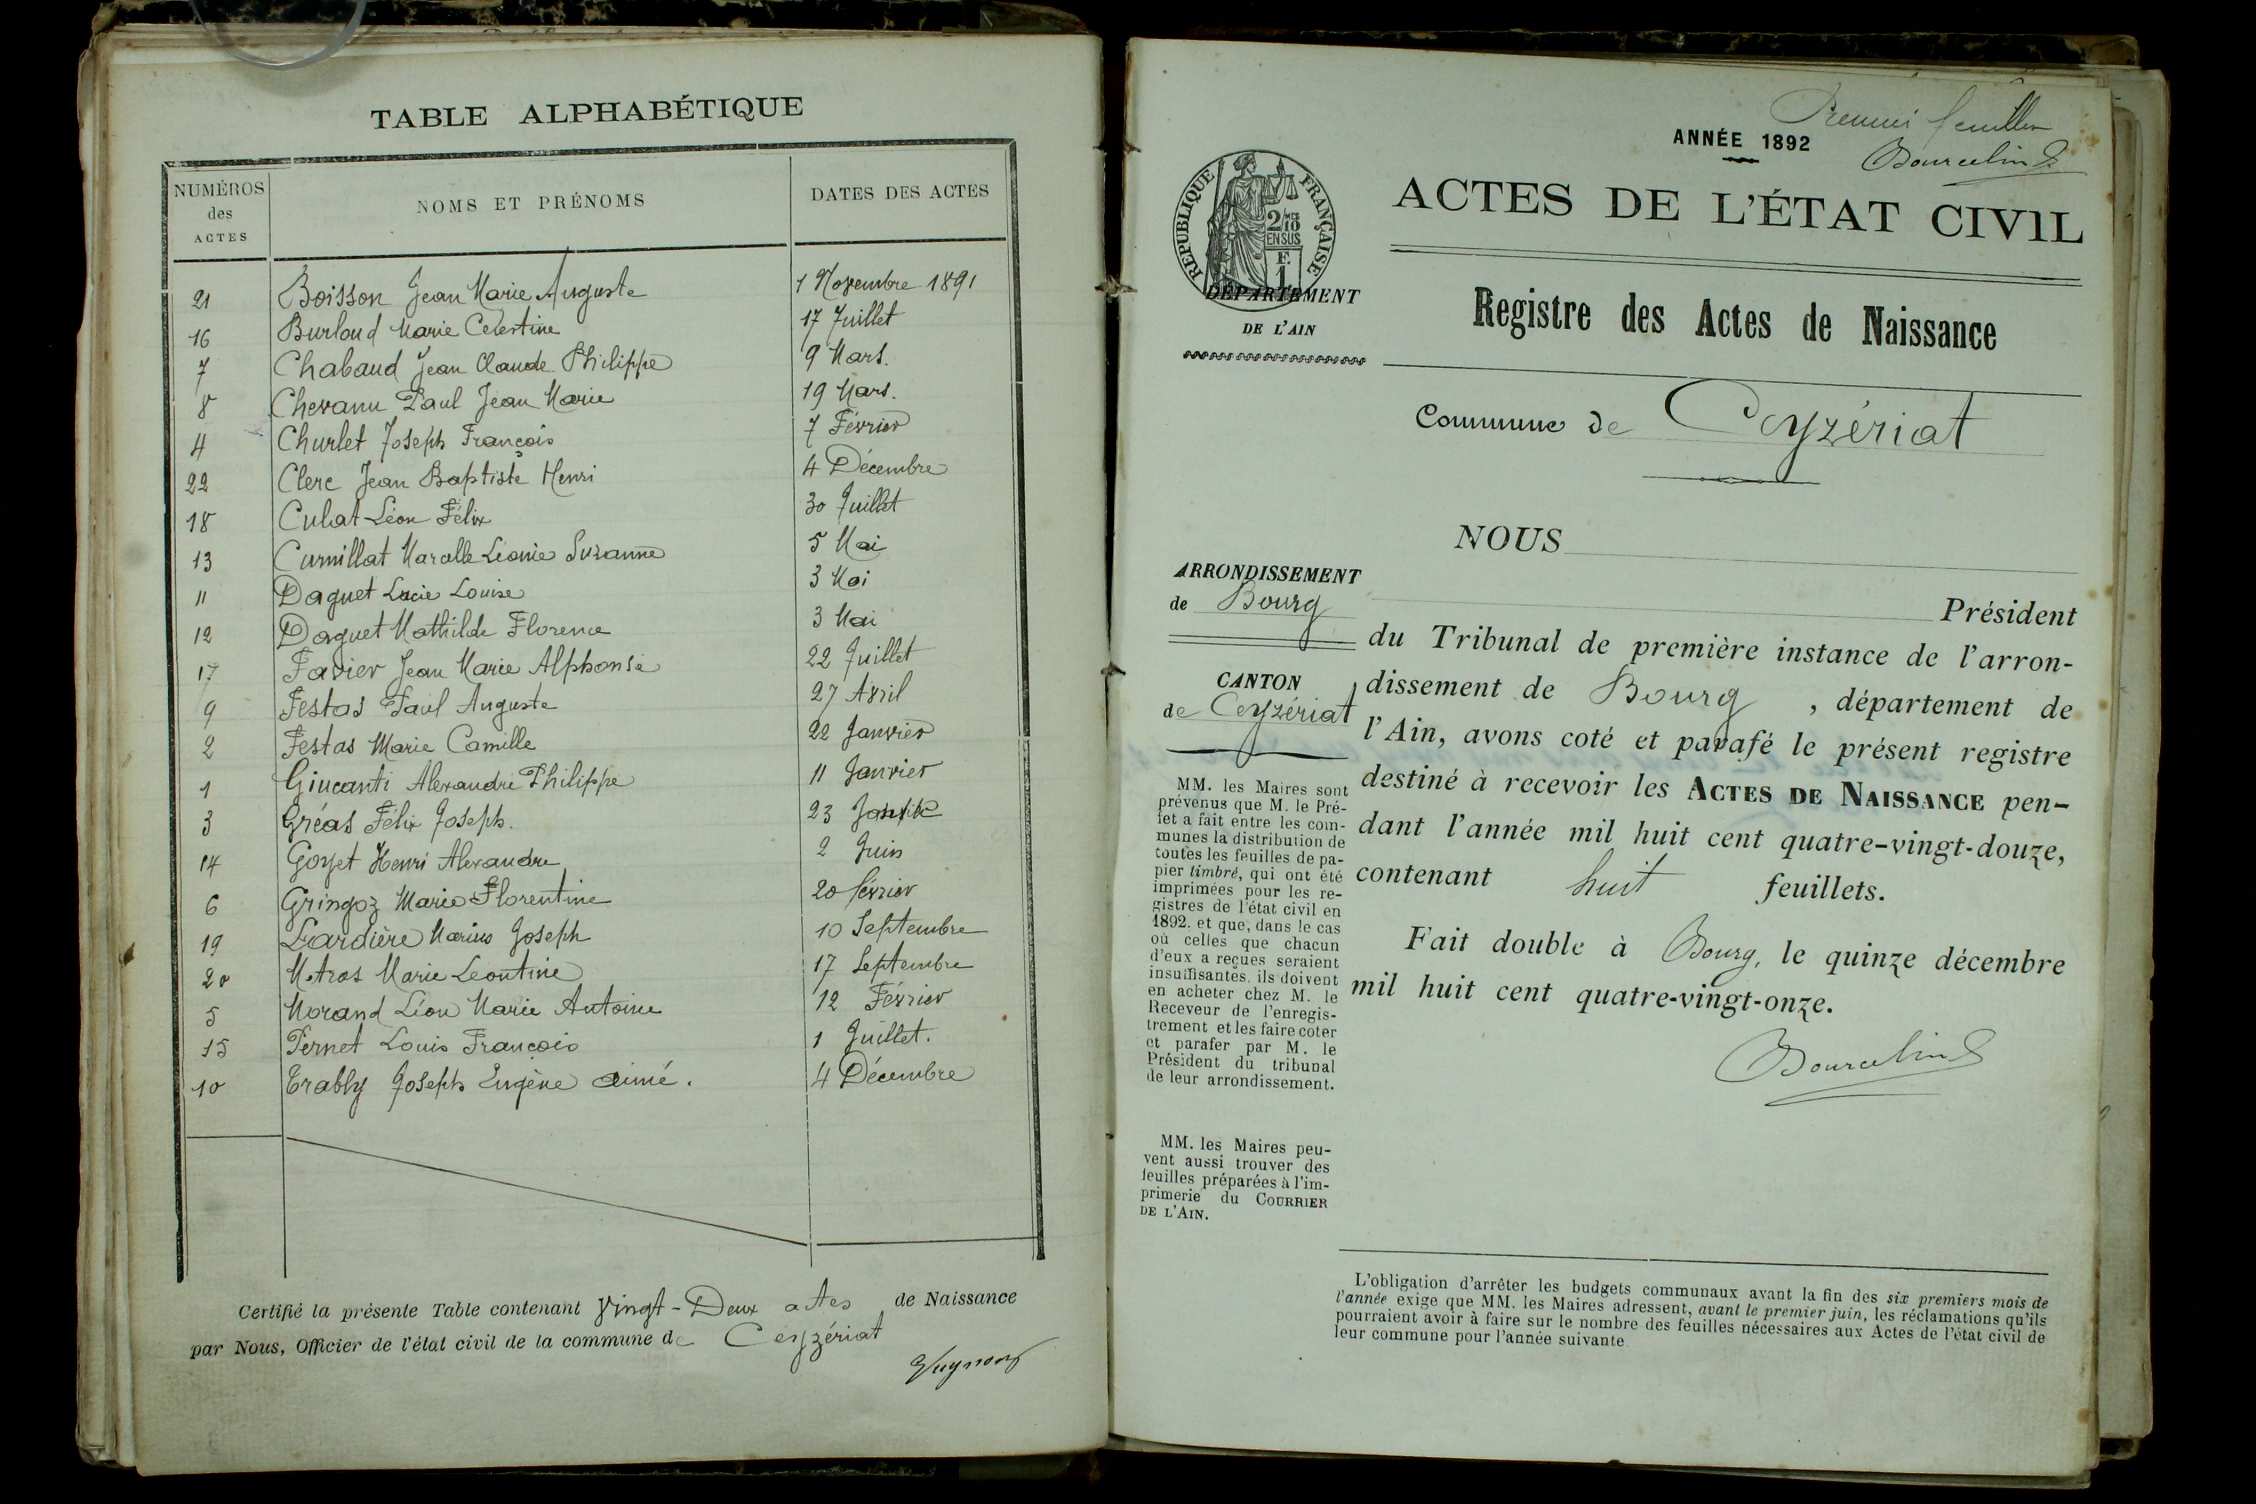 TABLE ALPHABÉTIQUE
NUMÉROS des ACTES
NOMS ET PRÉNOMS
DATES DES ACTES
21 Boisson Jean Marie Auguste 1 Novembre 1891
16 Burloud Marie Celestine 17 Juillet
7 Chabaud Jean Claude Philippe 9 Mars.
8 Chevanu Paul Jean Marie 19 Mars.
4 Churlet Joseph François 7 Février
22 Clerc Jean Baptiste Henri 4 Décembre
18 Culat Léon Félix 30 Juillet
13 Curnillat Léonie Suzanne 5 Mai
11 Daguet Lucie Louise 3 Mai
12 Daguet Mathilde Florence 3 Mai
17 Favier Jean Marie Alphonse 22 Juillet
9 Festas Paul Auguste 27 Avril
2 Festas Marie Camille 22 Janvier
1 Alexandre Philippe 11 Janvier
3 Gréas Félix Joseph. 23 Janvier
14 Goyet Henri Alexandre 2 Juin
6 Gringoz Marie Florentine 20 février
19 Lardière Marius Joseph 10 Septembre
20 Matras Marie Leontine 17 Septembre
5 Morand Léon Marie Antoine 12 Février
15 Pernet Louis François 1 Juillet.
10 Trably Joseph Eugène aimé. 4 Décembre
Certifié la présente Table contenant Vingt-Deux actes de Naissance
par Nous, Officier de l'état civil de la commune de Ceyzériat
Premier feuillet
ANNÉE 1892
Bourcelin
RÉPUBLIQUE FRANÇAISE
2/10 MES
EN SUS
F.
1
ACTES DE L'ÉTAT CIVIL
DÉPARTEMENT
DE L'AIN
Registre des Actes de Naissance
Commune de Ceyzériat
NOUS
ARRONDISSEMENT
de Bourg
CANTON
de Ceyzériat
Président
du Tribunal de première instance de l'arron-
dissement de Bourg, département de
l'Ain, avons coté et parafé le présent registre
destiné à recevoir les ACTES DE NAISSANCE pen-
dant l'année mil huit cent quatre-vingt-douze,
contenant huit feuillets.
Fait double à Bourg, le quinze décembre
mil huit cent quatre-vingt-onze.
Bourcelin
MM. les Maires sont
prévenus que M. le Pré-
fet a fait entre les com-
munes la distribution de
toutes les feuilles de pa-
pier timbré, qui ont été
imprimées pour les re-
gistres de l'état civil en
1892. et que, dans le cas
où celles que chacun
d'eux a reçues seraient
insuffisantes, ils doivent
en acheter chez M. le
Receveur de l'enregis-
trement et les faire coter
et parafer par M. le
Président du tribunal
de leur arrondissement.
MM. les Maires peu-
vent aussi trouver des
feuilles préparées à l'im-
primerie du COURRIER
DE L'AIN.
L'obligation d'arrêter les budgets communaux avant la fin des six premiers mois de
l'année exige que MM. les Maires adressent, avant le premier juin, les réclamations qu'ils
pourraient avoir à faire sur le nombre des feuilles nécessaires aux Actes de l'état civil de
leur commune pour l'année suivante